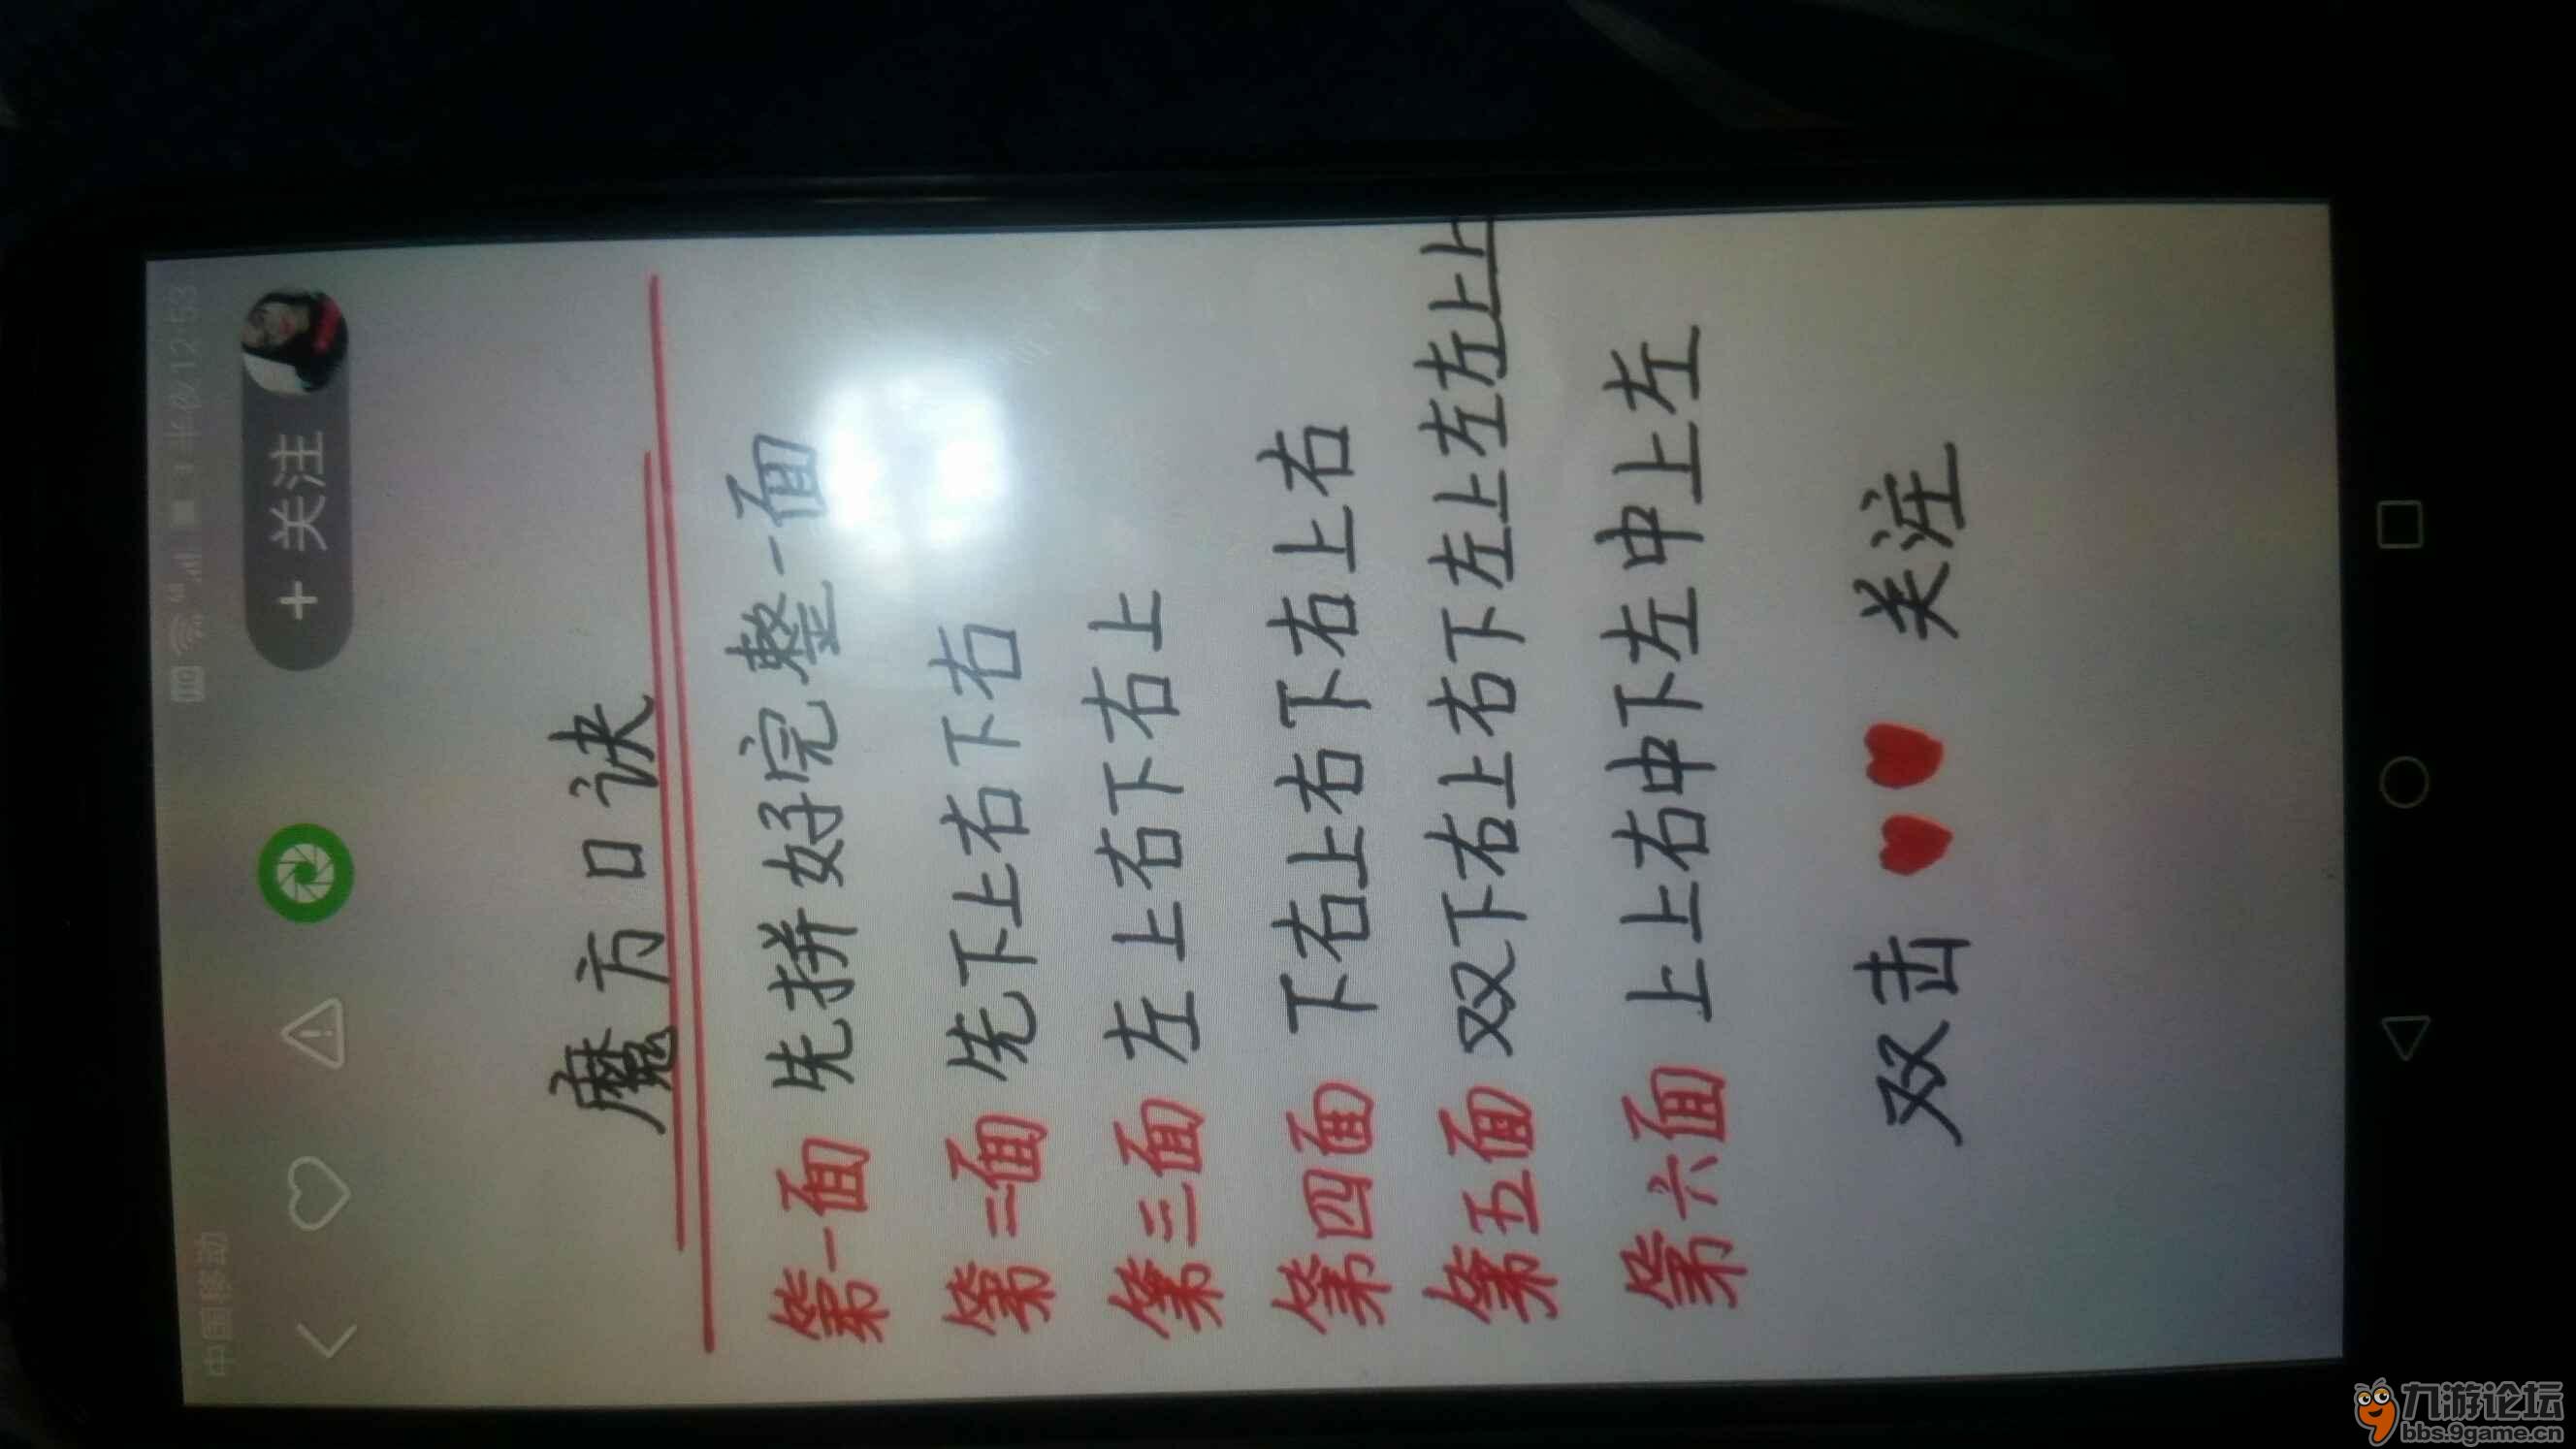 中国移动 12:53
+ 关注
魔方口诀
第一面 先拼好完整一面
第二面 先下上右下右
第三面 左上右下右上
第四面 下右上右下右上右
第五面 双下右上右下左上左左上上
第六面 上上右中下左中上左
双击 关注
九游论坛
bbs.9game.cn